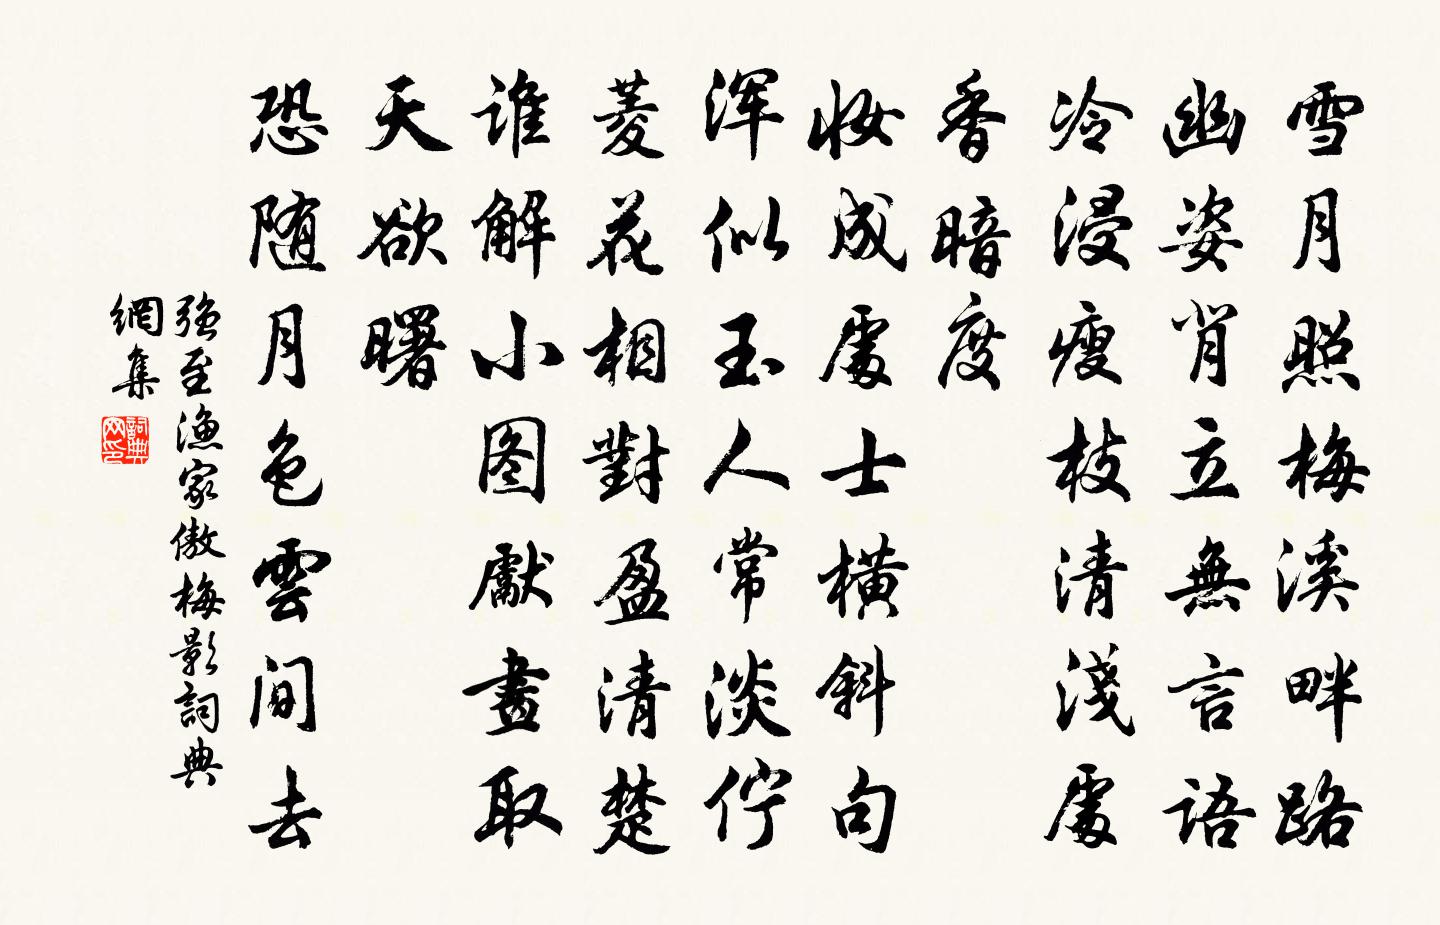 雪月照梅溪畔路
幽姿背立無言語
冷浸瘦枝清淺處
香暗度
妝成處士橫斜句
浑似玉人常淡佇
菱花相對盈清楚
谁解小图獻畫取
天欲曙
恐随月色雲间去
強至漁家傲梅影詞典
網集
詞典
网印